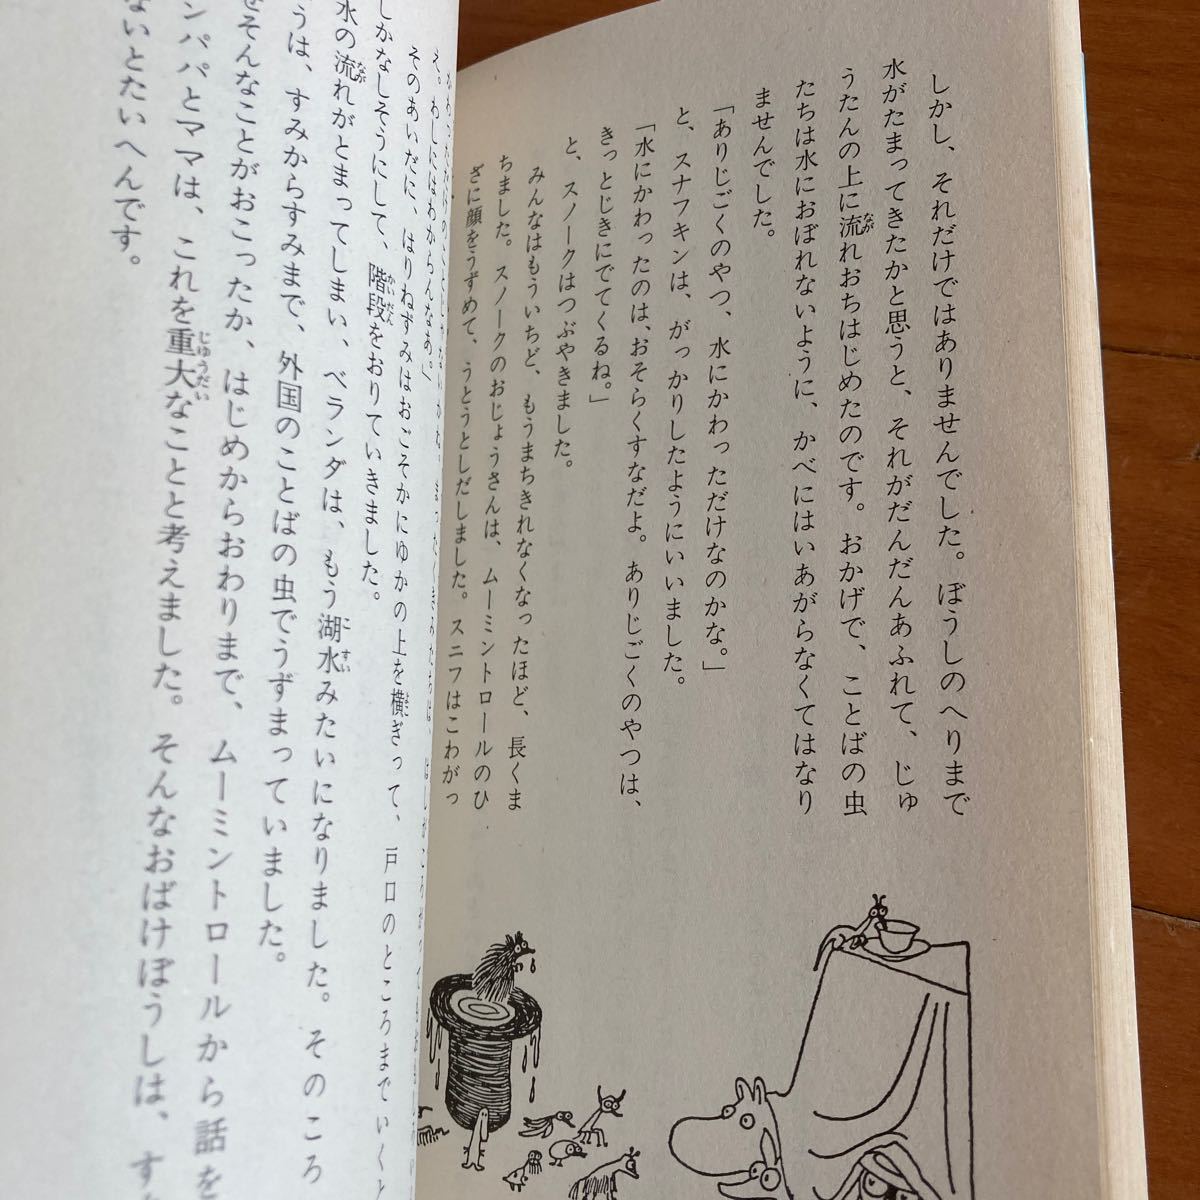 しかし、それだけではありませんでした。ぼうしのへりまで
水がたまってきたかと思うと、それがだんだんあふれて、じゅ
うたんの上に流れおちはじめたのです。おかげで、ことばの虫
たちは水におぼれないように、かべにはいあがらなくてはなり
ませんでした。
「ありじごくのやつ、水にかわっただけなのかな。」
と、スナフキンは、がっかりしたようにいいました。
「水にかわったのは、おそらくすなだよ。ありじごくのやつは、
きっとじきにでてくるね。」
と、スノークはつぶやきました。
みんなはもういちど、もうまちきれなくなったほど、長くま
ちました。スノークのおじょうさんは、ムーミントロールのひ
ざに顔をうずめて、うとうとしだしました。スニフはこわがっ
え。わしにはわからんなあ。」
そのあいだに、はりねずみはおごそかにゆかの上を横ぎって、戸口のところまでいくと
かなしそうにして、階段をおりていきました。
水の流れがとまってしまい、ベランダは、もう湖水みたいになりました。そのころ
うは、すみからすみまで、外国のことばの虫でうずまっていました。
をそんなことがおこったか、はじめからおわりまで、ムーミントロールから話を
ンパパとママは、これを重大なことと考えました。そんなおばけぼうしは、す
ないとたいへんです。